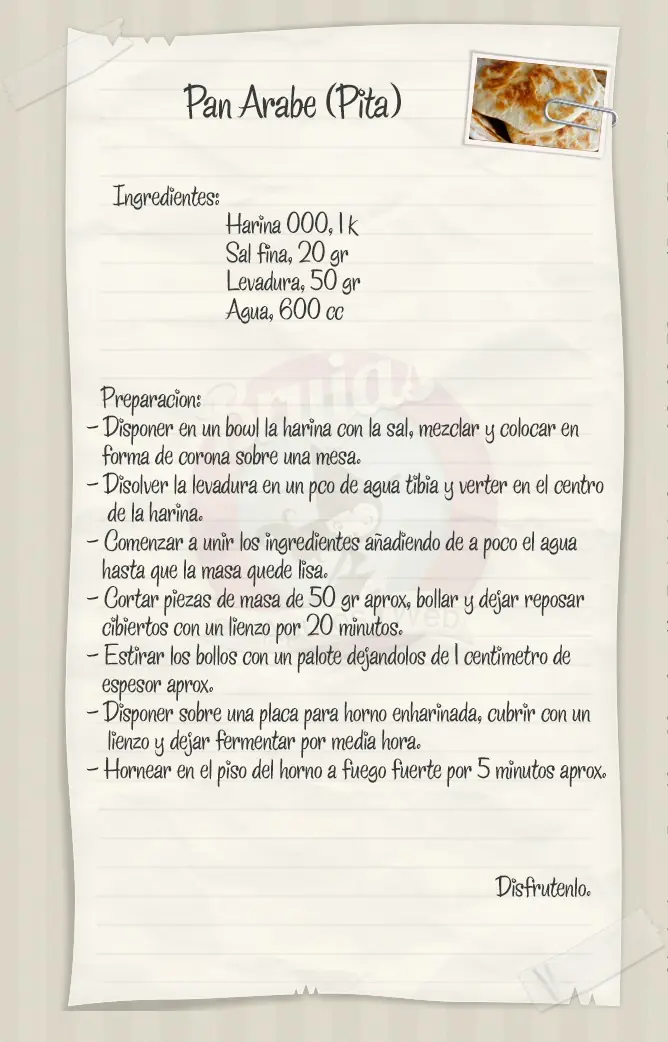 Pan Arabe (Pita)
Ingredientes:
Harina 000, 1 k
Sal fina, 20 gr
Levadura, 50 gr
Agua, 600 cc
Brujas
Preparacion:
- Disponer en un bowl la harina con la sal, mezclar y colocar en
forma de corona sobre una mesa.
- Disolver la levadura en un pco de agua tibia y verter en el centro
de la harina.
- Comenzar a unir los ingredientes añadiendo de a poco el agua
hasta que la masa quede lisa.
- Cortar piezas de masa de 50 gr aprox, bollar y dejar reposar
cibiertos con un lienzo por 20 minutos.
- Estirar los bollos con un palote dejandolos de 1 centimetro de
espesor aprox.
- Disponer sobre una placa para horno enharinada, cubrir con un
lienzo y dejar fermentar por media hora.
- Hornear en el piso del horno a fuego fuerte por 5 minutos aprox.
Disfrutenlo.